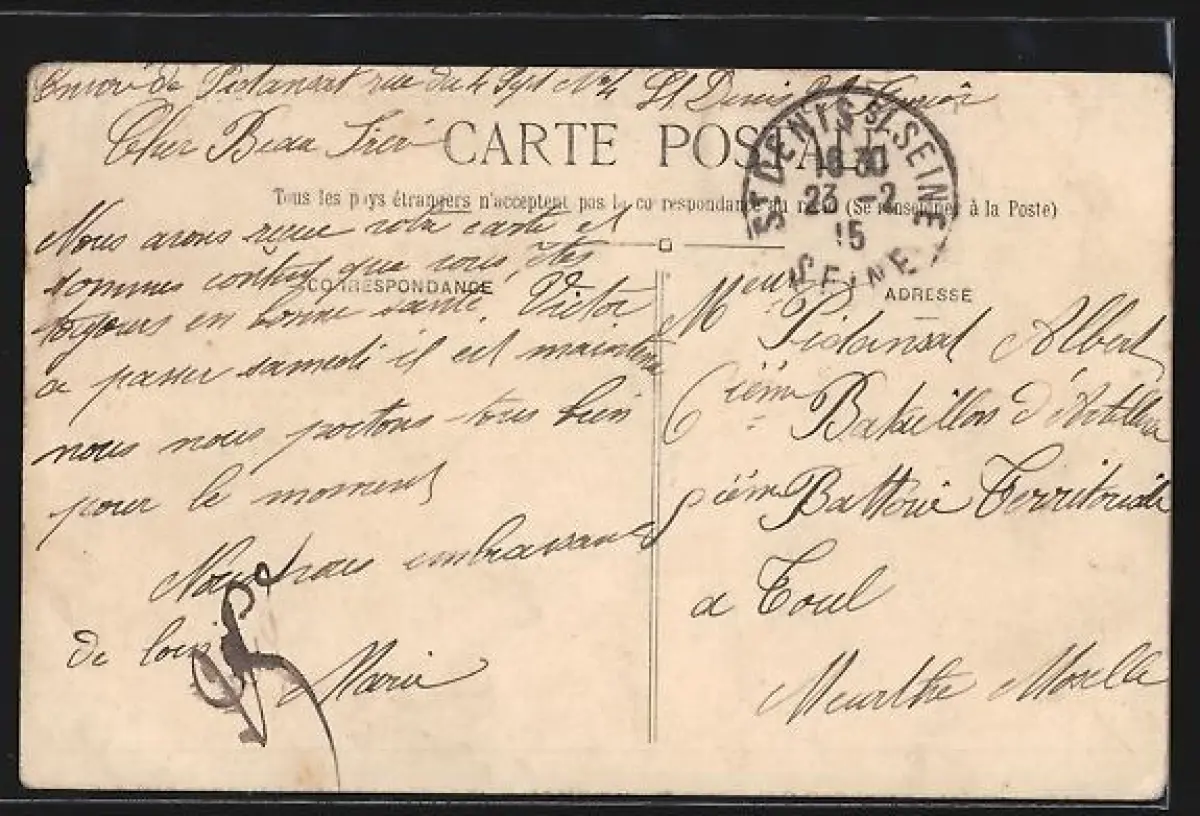 Envoi de Pidansat rue du 4 Sept N 4 St Denis
Cher Beau Frère
CARTE POSTALE
Tous les pays étrangers n'acceptent pas la correspondance au recto (Se renseigner à la Poste)
ST DENIS S/ SEINE
16 30
23 - 2
15
SEINE
CORRESPONDANCE
Nous avons reçue votre carte et
sommes content que vous êtes
toujours en bonne santé. Victor
a passer samedi il est maintenu
nous nous portons tous bien
pour le moment
Nous vous embrassant
de loin
Marie
ADRESSE
Meur
Pidansat Albert
6 ième Bataillon d'Artillerie
ième Battrie Territoriale
a Toul
Meurthe Moselle